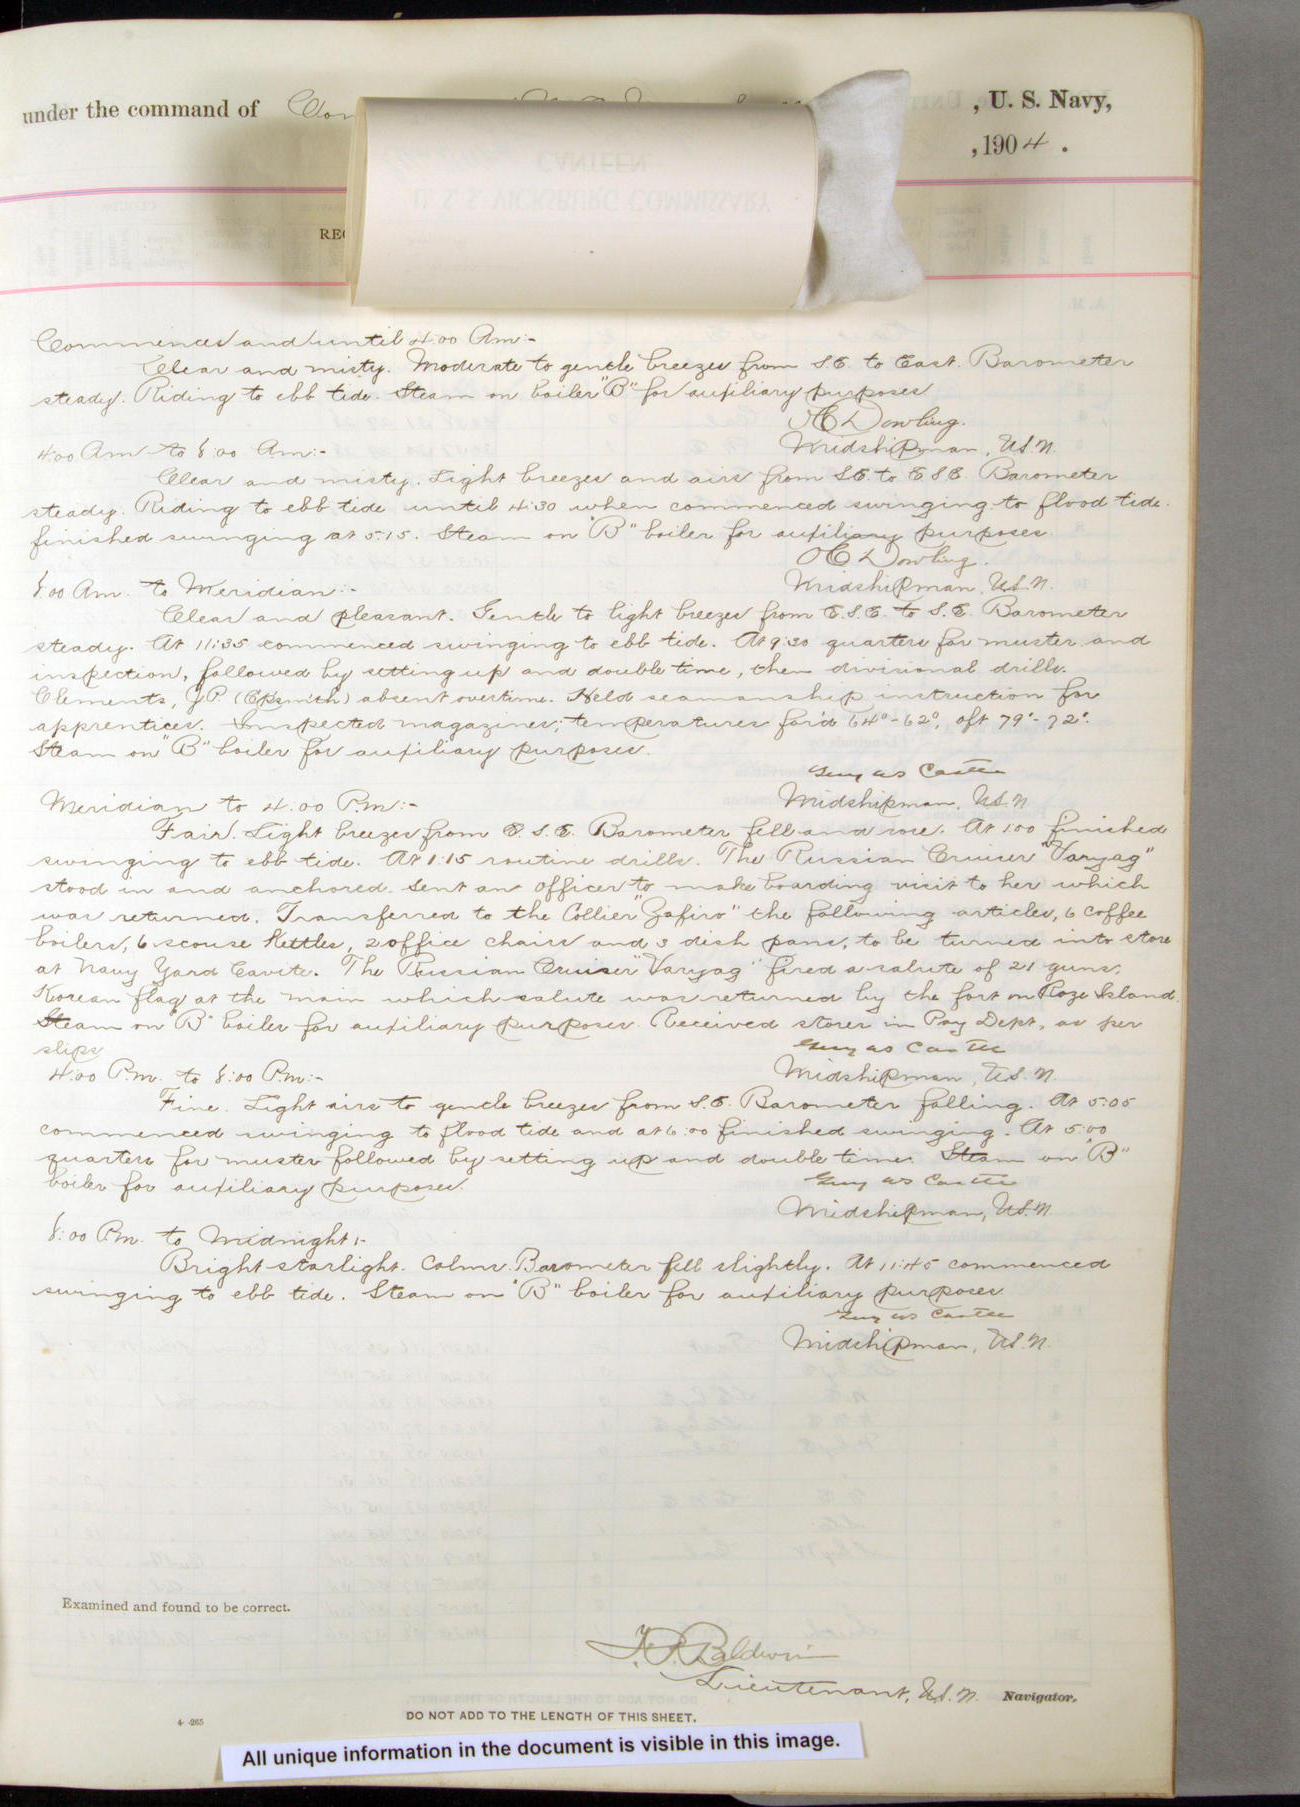 under the command of , U. S. Navy,
, 1904.
CANTEEN
U. S. S. VICKSBURG COMMISSARY
REC
Commences and until 4:00 Am:-
Clear and misty. Moderate to gentle breezes from S.E. to East. Barometer
steady. Riding to ebb tide. Steam on boiler "B" for auxiliary purposes
Dowling.
Midshipman, U.S.N.
4:00 Am to 8:00 Am:-
Clear and misty. Light breezes and airs from S.E. to E.S.E. Barometer
steady. Riding to ebb tide until 4:30 when commenced swinging to flood tide.
finished swinging at 5:15. Steam on "B" boiler for auxiliary purposes.
Dowling.
Midshipman, U.S.N.
8:00 Am. to Meridian:-
Clear and pleasant. Gentle to light breezes from E.S.E. to S.E. Barometer
steady. At 11:35 commenced swinging to ebb tide. At 9:30 quarters for muster and
inspection, followed by setting up and double time, then divisional drills.
Clements, J.P. absent overtime. Held seamanship instruction for
apprentices. Inspected magazines; temperatures for'd 64°-62°, aft 79°-72°.
Steam on "B" boiler for auxiliary purposes.
Guy W S Castle
Midshipman, U.S.N
Meridian to 4:00 P.m:-
Fair. Light breezes from E.S.E. Barometer fell and rose. At 1:00 finished
swinging to ebb tide. At 1:15 routine drills. The Russian Cruiser "Varyag"
stood in and anchored. Sent an officer to make boarding visit to her which
was returned. Transferred to the Collier "Zafiro" the following articles, 6 coffee
boilers, 6 scouse Kettles, 2 office chairs and 3 dish pans, to be turned into store
at Navy Yard Cavite. The Russian Cruiser "Varyag" fired a salute of 21 guns,
Korean flag at the main which salute was returned by the fort on Roze Island.
Steam on "B" boiler for auxiliary purposes. Received stores in Pay Dept, as per
slips
Guy W S Castle
Midshipman, U.S.N.
4:00 P.m. to 8:00 P.m:-
Fine. Light airs to gentle breezes from S.E. Barometer falling. At 5:05
commenced swinging to flood tide and at 6:00 finished swinging. At 5:00
quarters for muster followed by setting up and double time. Steam on "B"
boiler for auxiliary purposes.
Guy W S Castle
Midshipman, U.S.N.
8:00 P.m. to Midnight:-
Bright starlight. Calms. Barometer fell slightly. At 11:45 commenced
swinging to ebb tide. Steam on "B" boiler for auxiliary purposes.
Guy W S Castle
Midshipman, U.S.N.
Examined and found to be correct.
Baldwin
Lieutenant, U.S.N. Navigator.
DO NOT ADD TO THE LENGTH OF THIS SHEET.
4-265
All unique information in the document is visible in this image.